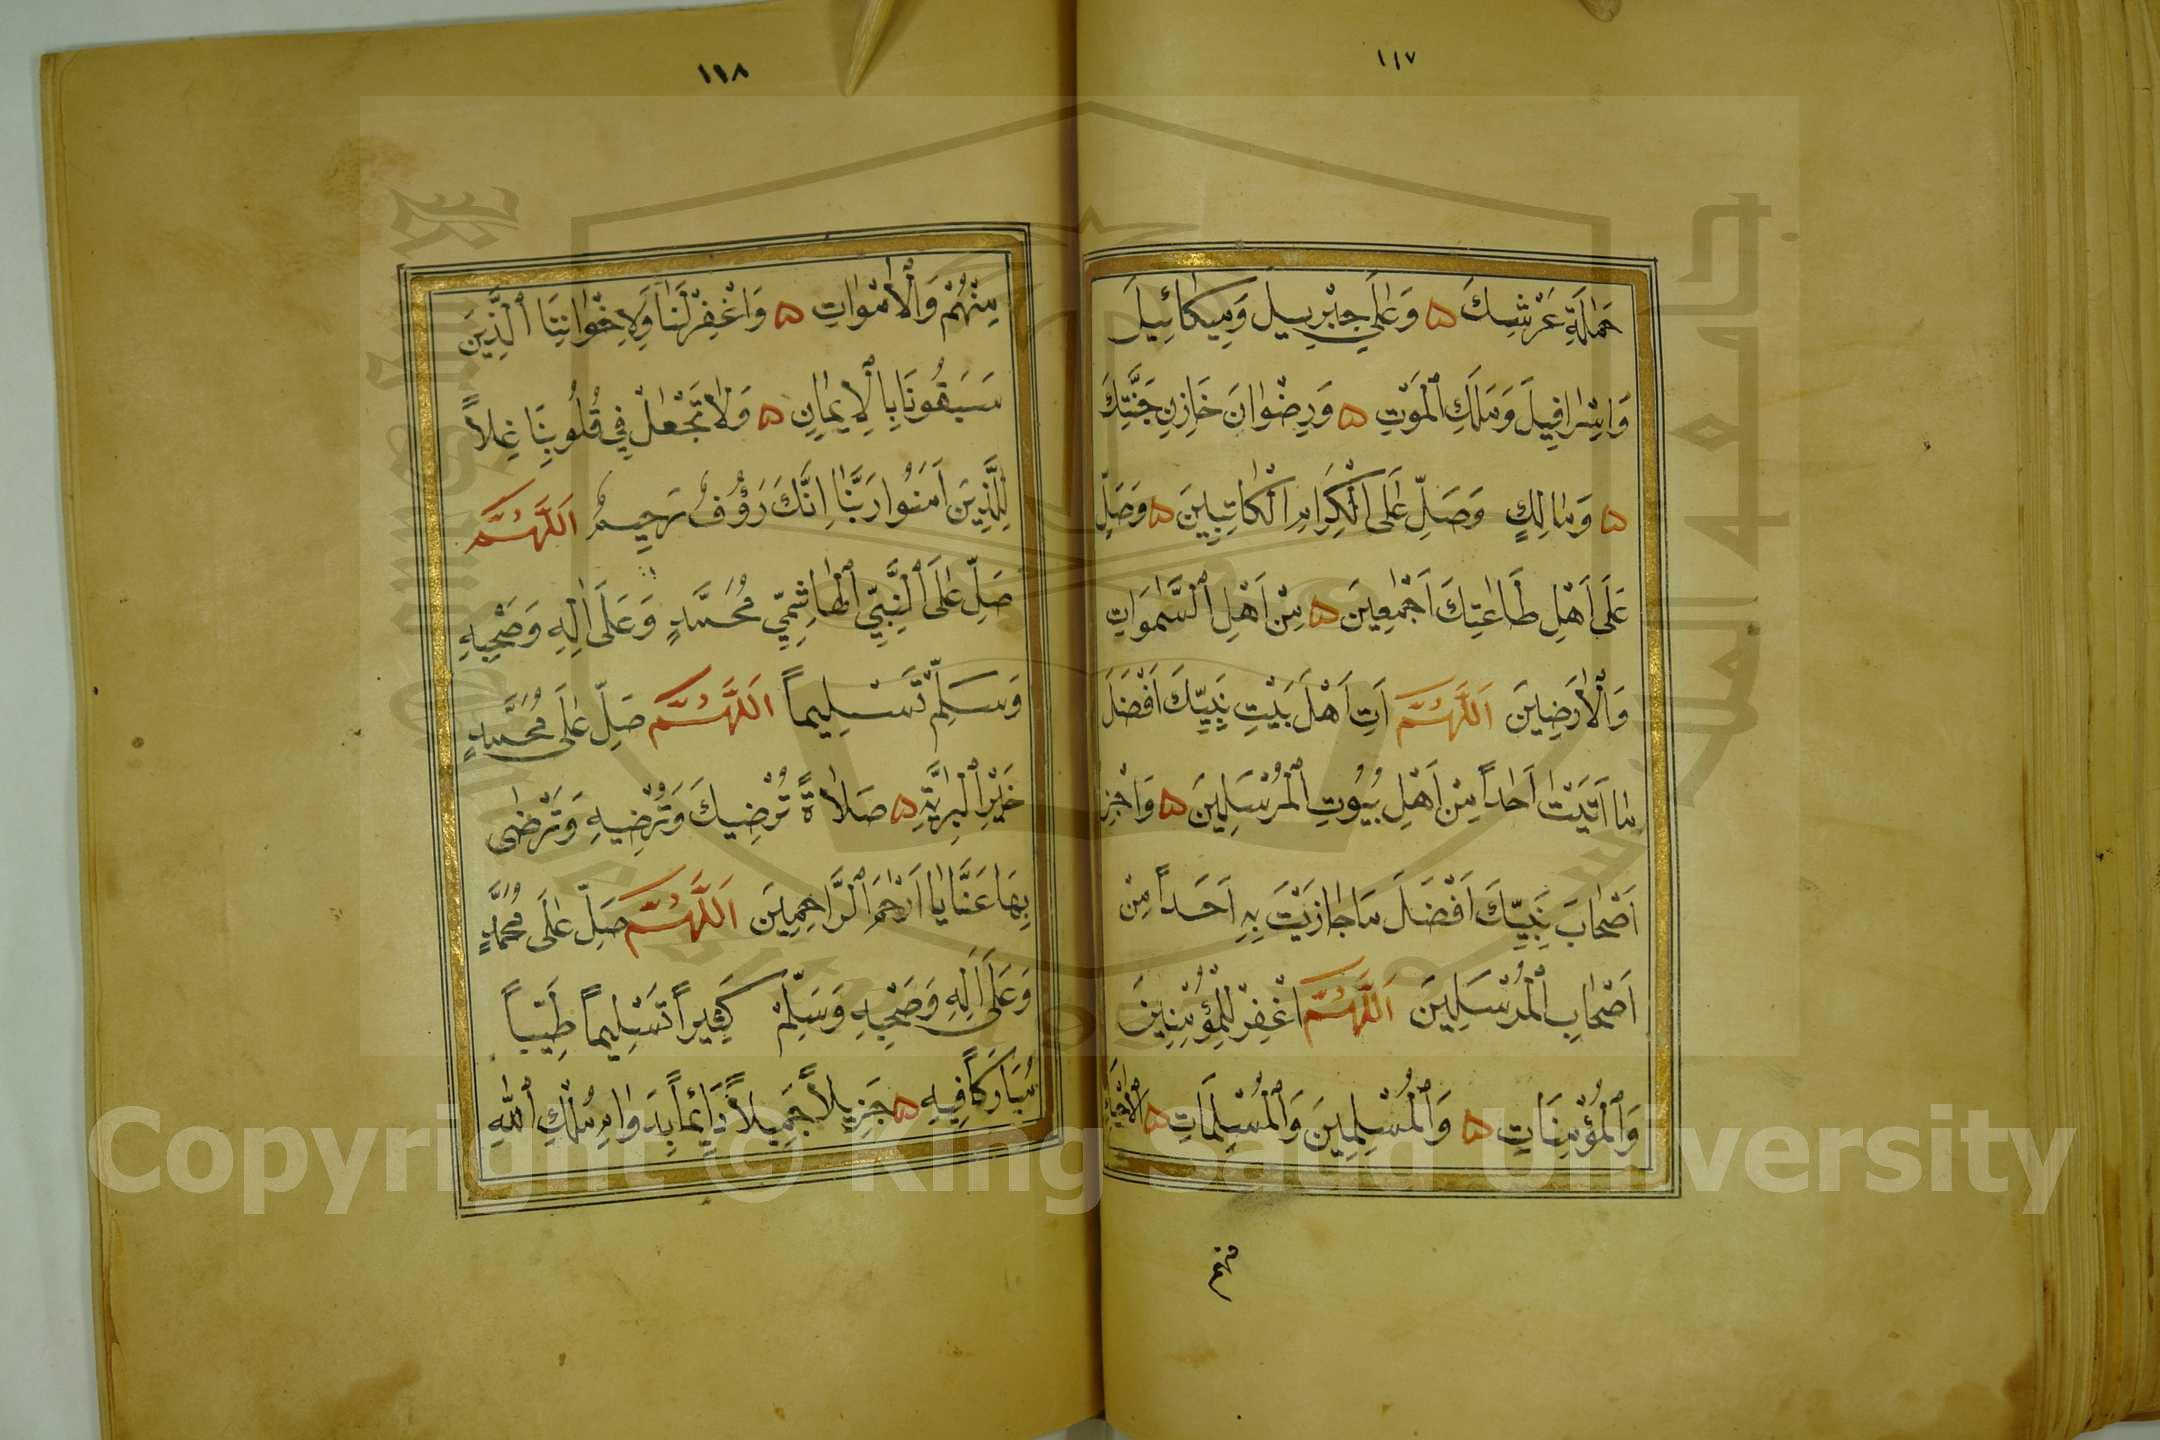 ١١٧
حَمَلَةِ عَرْشِكَ ۵ وَعَلَى جِبْرِيلَ وَمِيكَائِيلَ
وَاِسْرَافِيلَ وَمَلَكِ ٱلْمَوْتِ ۵ وَرِضْوَانَ خَازِنِ جَنَّتِكَ
۵ وَمَالِكٍ وَصَلِّ عَلَى الْكِرَامِ الْكَاتِبِينَ ۵ وَصَلِّ
عَلَى اَهْلِ طَاعَتِكَ اَجْمَعِينَ ۵ مِنْ اَهْلِ ٱلسَّمٰوَاتِ
وَٱلْاَرَضِينَ اَللَّهُمَّ اٰتِ اَهْلَ بَيْتِ نَبِيِّكَ اَفْضَلَ
مَا اٰتَيْتَ اَحَداً مِنْ اَهْلِ بُيُوتِ ٱلْمُرْسَلِينَ ۵ وَاجْزِ
اَصْحَابَ نَبِيِّكَ اَفْضَلَ مَا جَازَيْتَ بِهِ اَحَداً مِنْ
اَصْحَابِ ٱلْمُرْسَلِينَ اَللَّهُمَّ اغْفِرْ لِلْمُؤْمِنِينَ
وَٱلْمُؤْمِنَاتِ ۵ وَٱلْمُسْلِمِينَ وَٱلْمُسْلِمَاتِ ۵ اَلْاَحْيَاءِ
منهم
١١٨
مِنْهُمْ وَٱلْاَمْوَاتِ ۵ وَاغْفِرْ لَنَا وَلِاِخْوَانِنَا ٱلَّذِينَ
سَبَقُونَا بِالْاِيمَانِ ۵ وَلَا تَجْعَلْ فِي قُلُوبِنَا غِلاًّ
لِلَّذِينَ اٰمَنُوا رَبَّنَا اِنَّكَ رَؤُفٌ رَحِيمٌ اَللَّهُمَّ
صَلِّ عَلَى ٱلنَّبِيِّ ٱلْهَاشِمِيِّ مُحَمَّدٍ وَعَلَى اٰلِهِ وَصَحْبِهِ
وَسَلِّمْ تَسْلِيماً اَللَّهُمَّ صَلِّ عَلَى مُحَمَّدٍ
خَيْرِ ٱلْبَرِيَّةِ ۵ صَلَاةً تُرْضِيكَ وَتُرْضِيهِ وَتَرْضَى
بِهَا عَنَّا يَا اَرْحَمَ ٱلرَّاحِمِينَ اَللَّهُمَّ صَلِّ عَلَى مُحَمَّدٍ
وَعَلَى اٰلِهِ وَصَحْبِهِ وَسَلِّمْ كَثِيراً تَسْلِيماً طَيِّباً
مُبَارَكاً فِيهِ ۵ جَزِيلاً جَمِيلاً دَائِماً بِدَوَامِ مُلْكِ ٱللّٰهِ
Copyright © King Saud University